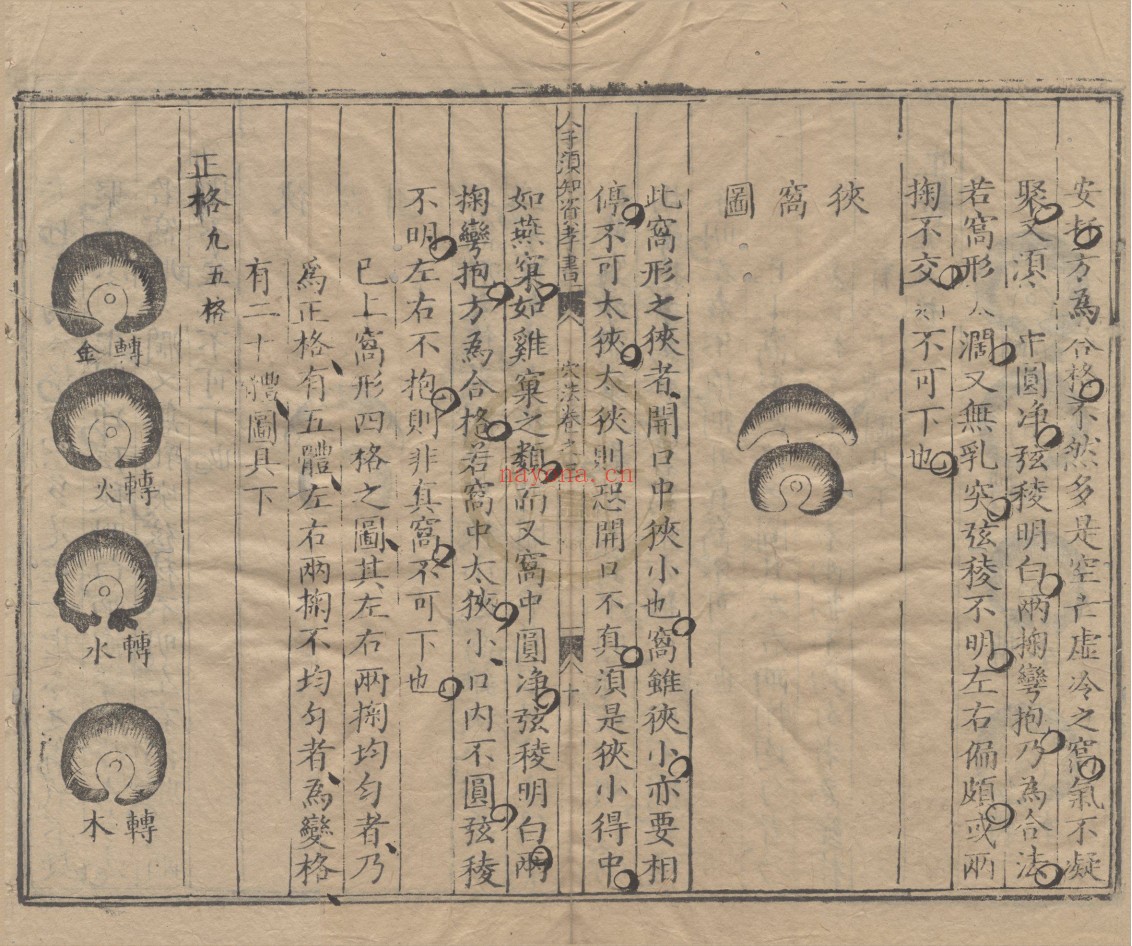 安扦方為合格不然多是空亡虛冷之窩氣不凝
聚又須中圓净弦稜明白兩掬彎抱乃為合法
若窩形太濶又無乳突弦稜不明左右偏頗或兩
掬不交則不可下也
狹窩圖
此窩形之狹者開口中狹小也窩雖狹小亦要相
停不可太狹太狹則恐開口不真須是狹小得中
如燕窠如雞窠之類而又窩中圓净弦稜明白兩
人子須知資孝書
穴法卷之
十
掬彎抱方為合格若窩中太狹小口内不圓弦稜
不明左右不抱則非真窩不可下也
已上窩形四格之圖其左右兩掬均匀者乃
為正格有五體左右兩掬不均匀者為變格
有二十體圖具下
正格九五格
轉金
轉火
轉水
轉木
nayona.cn